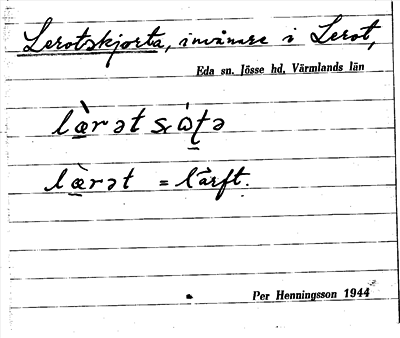 Lerotskjorta, invånare i Lerot,
Eda sn. Jösse hd, Värmlands län
læ̀rət
læ̀rət = lärft.
Per Henningsson 1944